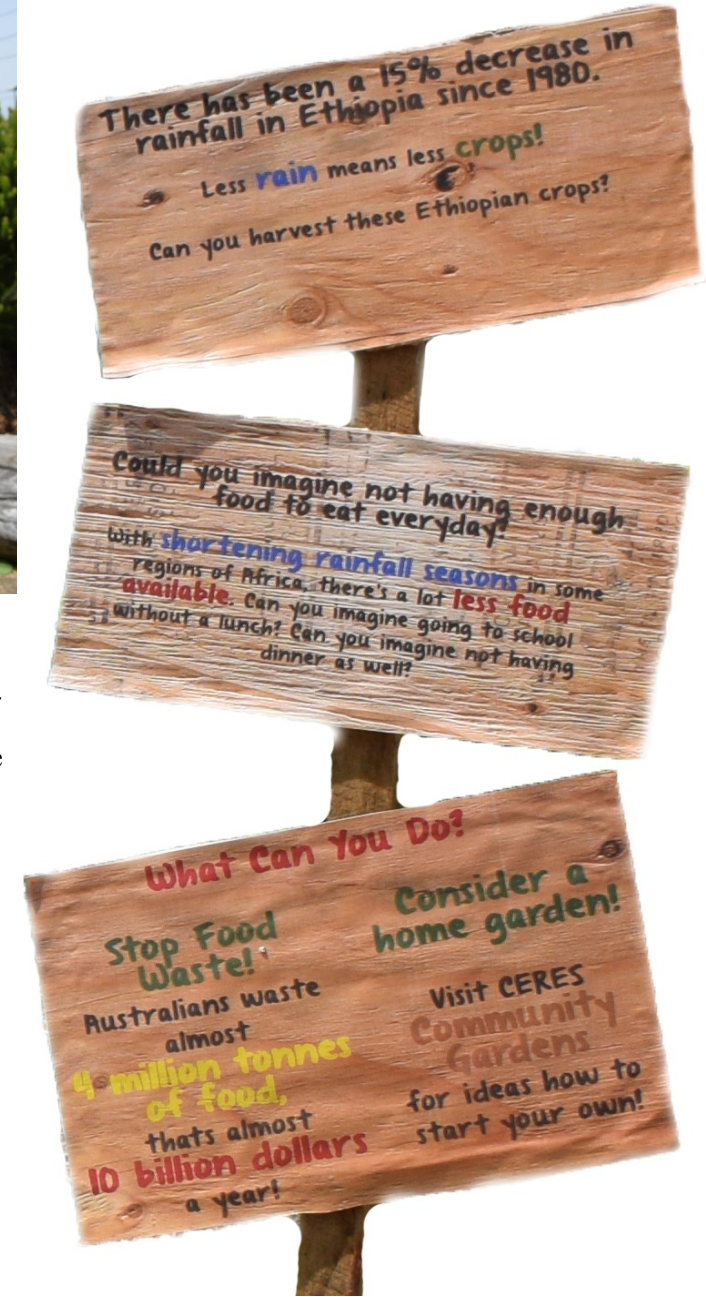 There has been a 15% decrease in
rainfall in Ethiopia since 1980.
Less rain means less crops!
Can you harvest these Ethiopian crops?
Could you imagine not having enough
food to eat everyday?
With shortening rainfall seasons in some
regions of Africa, there's a lot less food
available. Can you imagine going to school
without a lunch? Can you imagine not having
dinner as well?
What Can You Do?
Stop Food
Waste!
Australians waste
almost
4 million tonnes
of food,
thats almost
10 billion dollars
a year!
Consider a
home garden!
Visit CERES
Community
Gardens
for ideas how to
start your own!